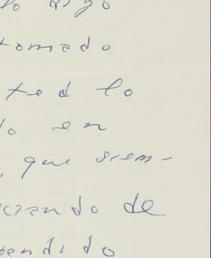 digo
tomado
ted lo
lo en
, que siem-
ciendo de
pendido